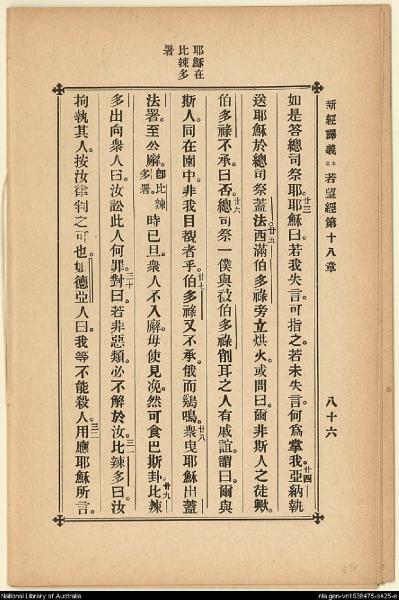 新經譯義**若望經第十八章 八十六
耶穌在
比辣多
署
如是答總司祭耶。廿三耶穌曰。若我失言。可指之。若未失言。何爲掌我。廿四亞納執
送耶穌於總司祭蓋法。廿五西滿伯多祿旁立烘火。或問曰。爾非斯人之徒歟。
伯多祿不承。曰。否。廿六總司祭一僕與被伯多祿削耳之人有戚誼。謂曰。爾與
斯人。同在園中。非我目覩者乎。廿七伯多祿又不承。俄而鷄鳴。廿八衆曳耶穌出蓋
法署。至公廨。卽比辣多署。時已旦。衆人不入廨。毋使見凂。然可食巴斯卦。廿九比辣
多出向衆人曰。汝訟此人何罪。三十對曰。若非惡類。必不解於汝。三一比辣多曰。汝
拘執其人。按汝律判之可也。如德亞人曰。我等不能殺人。三二用應耶穌所言。
National Library of Australia
nla.gen-vn1938475-s425-e